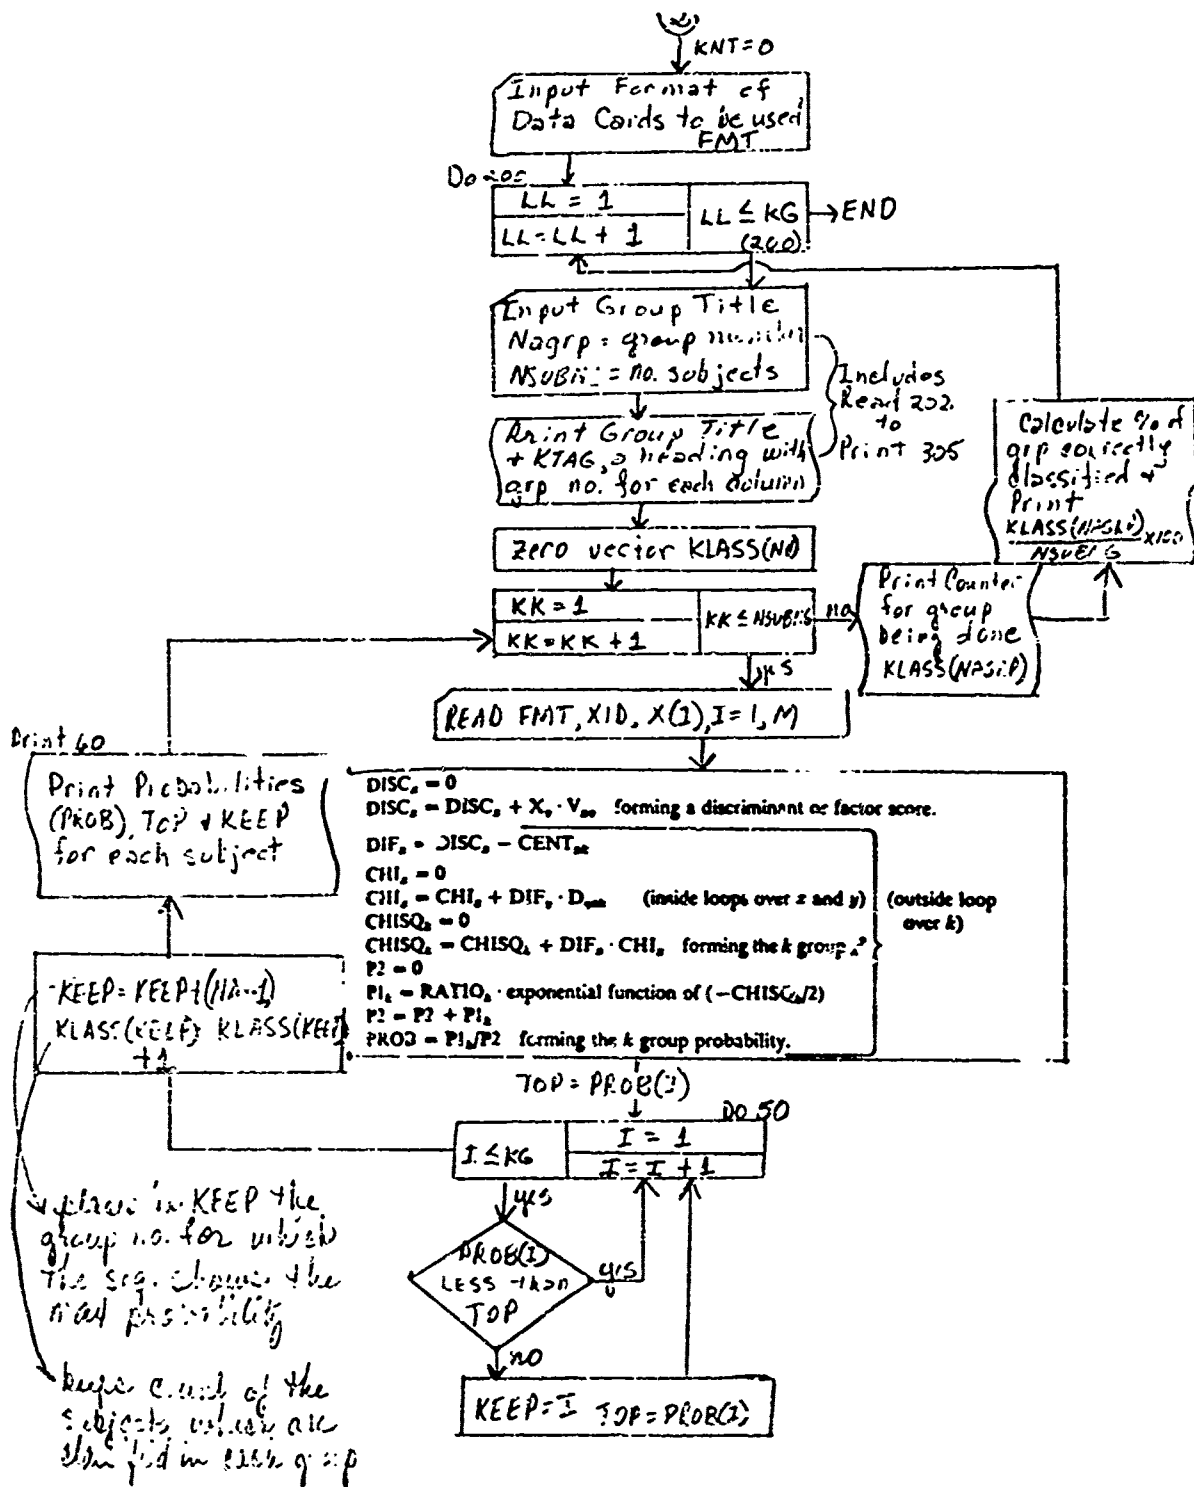 (2)
KNT=0
Input Format of
Data Cards to be used
FMT
Do 200
LL = 1
LL=LL+ 1
LL ≤ KG
(200)
END
Input Group Title
Nagrp = group number
= no. subjects
Includes
Read 202
to
Print 305
Print Group Title
+ KTAG, a heading with
grp no. for each column
Calculate % of
grp correctly
classified +
Print
X100
Zero vector
KK = 1
KK = KK + 1
KK ≤
no
yes
Print Counter
for group
being done
READ FMT, XID, X(I), I = 1, M
Print 60
Print Probabilities
(PROB), TOP + KEEP
for each subject
DISC = 0
DISC = DISC + X · V forming a discriminant or factor score.
DIF = DISC − CENT
CHI = 0
CHI = CHI + DIF · D (inside loops over z and y)
(outside loop
over k)
CHISQₖ = 0
CHISQₖ = CHISQₖ + DIF · CHI forming the k group
P2 = 0
P1ₖ = RATIOₖ · exponential function of (−CHISQₖ/2)
P2 = P2 + P1ₖ
PROB = P1ₖ/P2 forming the k group probability.
KEEP = KEEP+
KLASS(KEEP) KLASS(KEEP)
+1
TOP = PROB(I)
DO 50
I ≤ KG
I = 1
I = I + 1
yes
PROB(I)
LESS than
TOP
yes
no
KEEP=I TOP=PROB(I)
places in KEEP the
group no. for which
the shows the
probability
keeps count of the
subjects which are
in each group